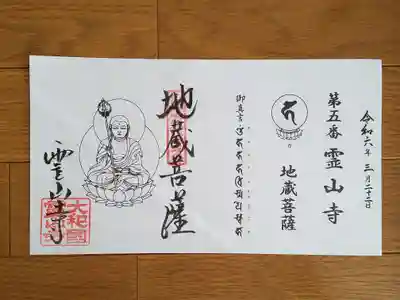 令和六年 三月二十二日
第五番 霊山寺
地蔵菩薩
御真言
地蔵菩薩
霊山寺
大和國